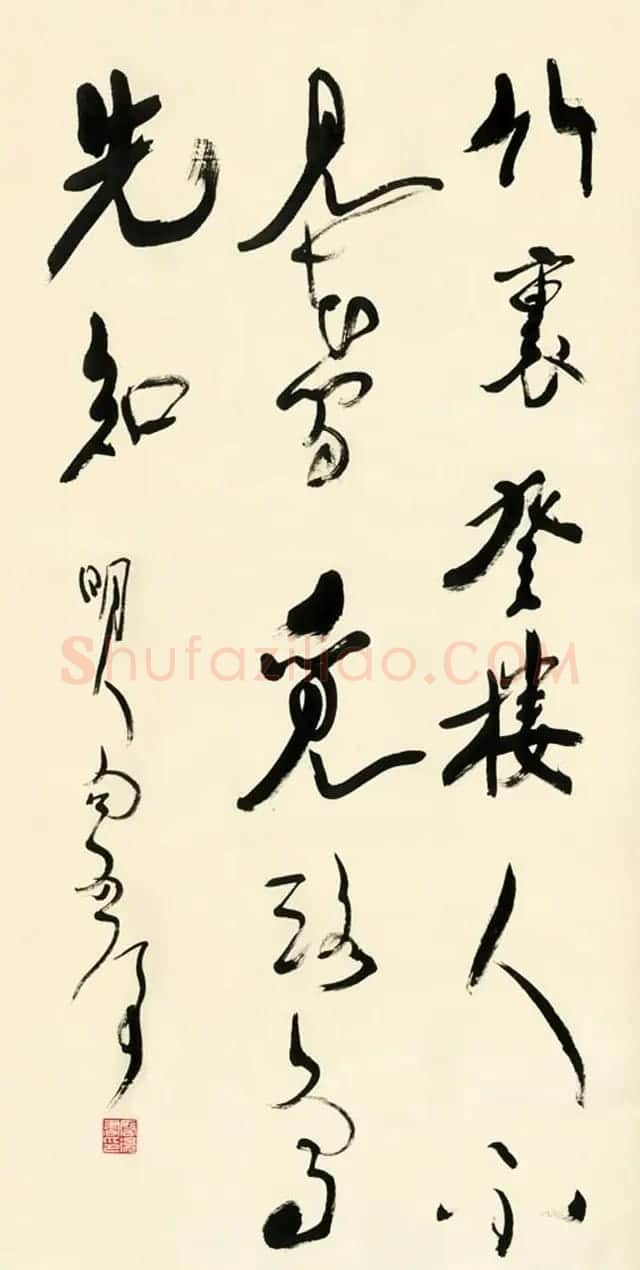 竹裏登樓人不
見花間覓路鳥
先知
明人句
Shufaziliao.COM